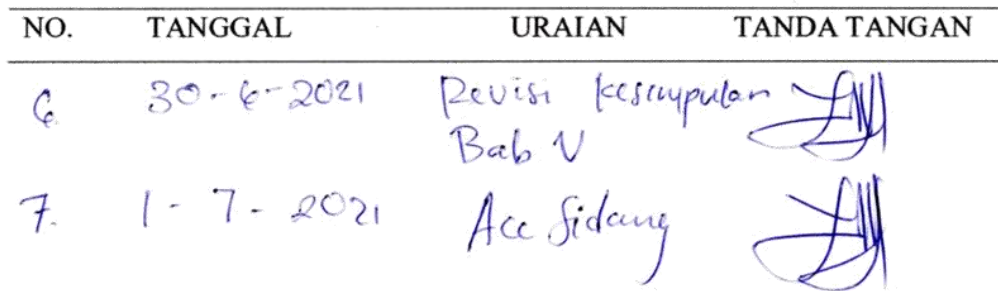 NO. TANGGAL URAIAN TANDA TANGAN
6. 30-6-2021 Revisi Kesimpulan
Bab V
7. 1-7-2021 Acc Sidang